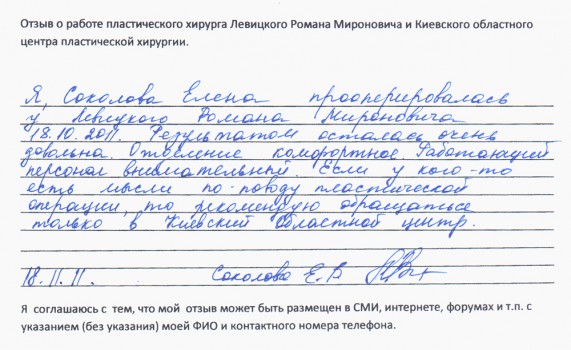 Отзыв о работе пластического хирурга Левицкого Романа Мироновича и Киевского областного
центра пластической хирургии.
Я, Соколова Елена прооперировалась
у Левицкого Романа Мироновича
18.10.2011. Результатом осталась очень
довольна. Отделение комфортное. Работающий
персонал внимательный. Если у кого-то
есть мысли по-поводу пластической
операции, то рекомендую обращаться
только в Киевский Областной центр.
18.11.11. Соколова Е.В
Я соглашаюсь с тем, что мой отзыв может быть размещен в СМИ, интернете, форумах и т.п. с
указанием (без указания) моей ФИО и контактного номера телефона.